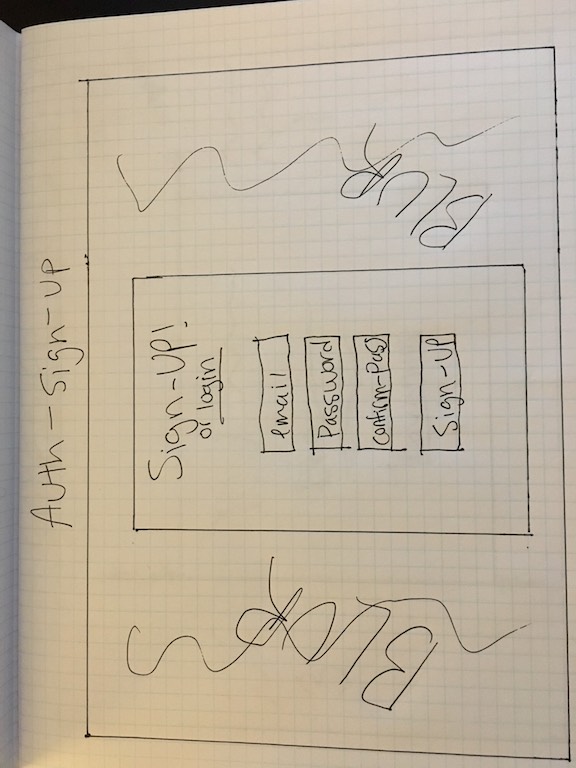 Auth-Sign-UP
Sign-UP!
or login
email
Password
confirm-pass
Sign-UP
BLUR
BLUR